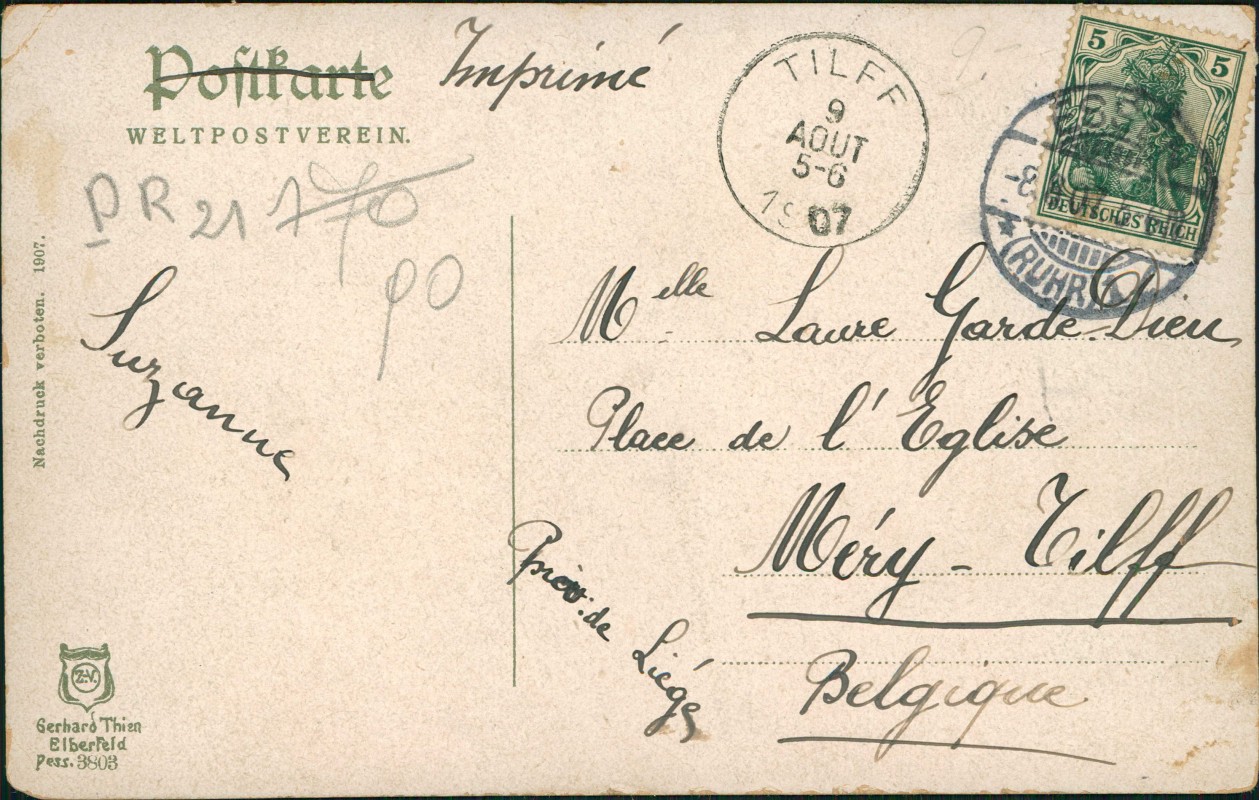 Postkarte
Imprimé
WELTPOSTVEREIN.
TILFF
9
AOUT
5-6
1907
5 5
DEUTSCHES REICH
-8
(RUHR)
DR 21 170
90
Nachdruck verboten. 1907.
Suzanne
Melle Laure Garde-Dieu
Place de l'Eglise
Méry - Tilff
Prov. de Liége
Belgique
Z.V.
Gerhard Thien
Elberfeld
Dess. 3803